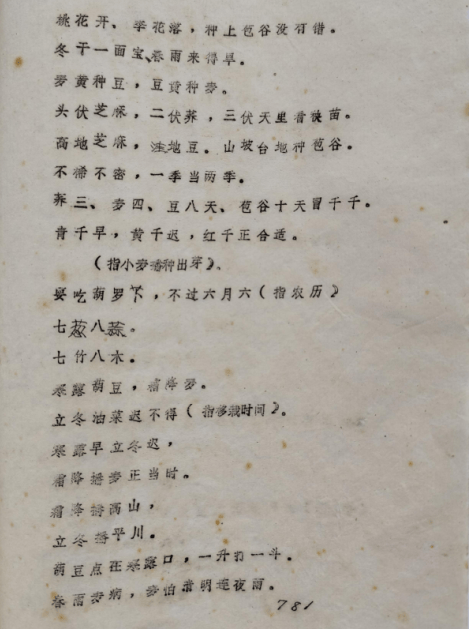 桃花开、李花落，种上苞谷没有错。
冬干一面宝、春雨来得早。
麦黄种豆，豆黄种麦。
头伏芝麻，二伏荞，三伏天里看秧苗。
高地芝麻，洼地豆。山坡台地种苞谷。
不稀不密，一季当两季。
荞三、麦四、豆八天、苞谷十天冒千千。
青千早，黄千迟，红千正合适。
（指小麦播种出芽）、
要吃葫罗卜，不过六月六（指农历）
七葱八蒜。
七竹八木。
寒露葫豆，霜降麦。
立冬油菜迟不得（指移栽时间）。
寒露早立冬迟，
霜降播麦正当时。
霜降播两山，
立冬播平川。
葫豆点在寒露口，一升打一斗。
春雨麦病，麦怕清明连夜雨。
781